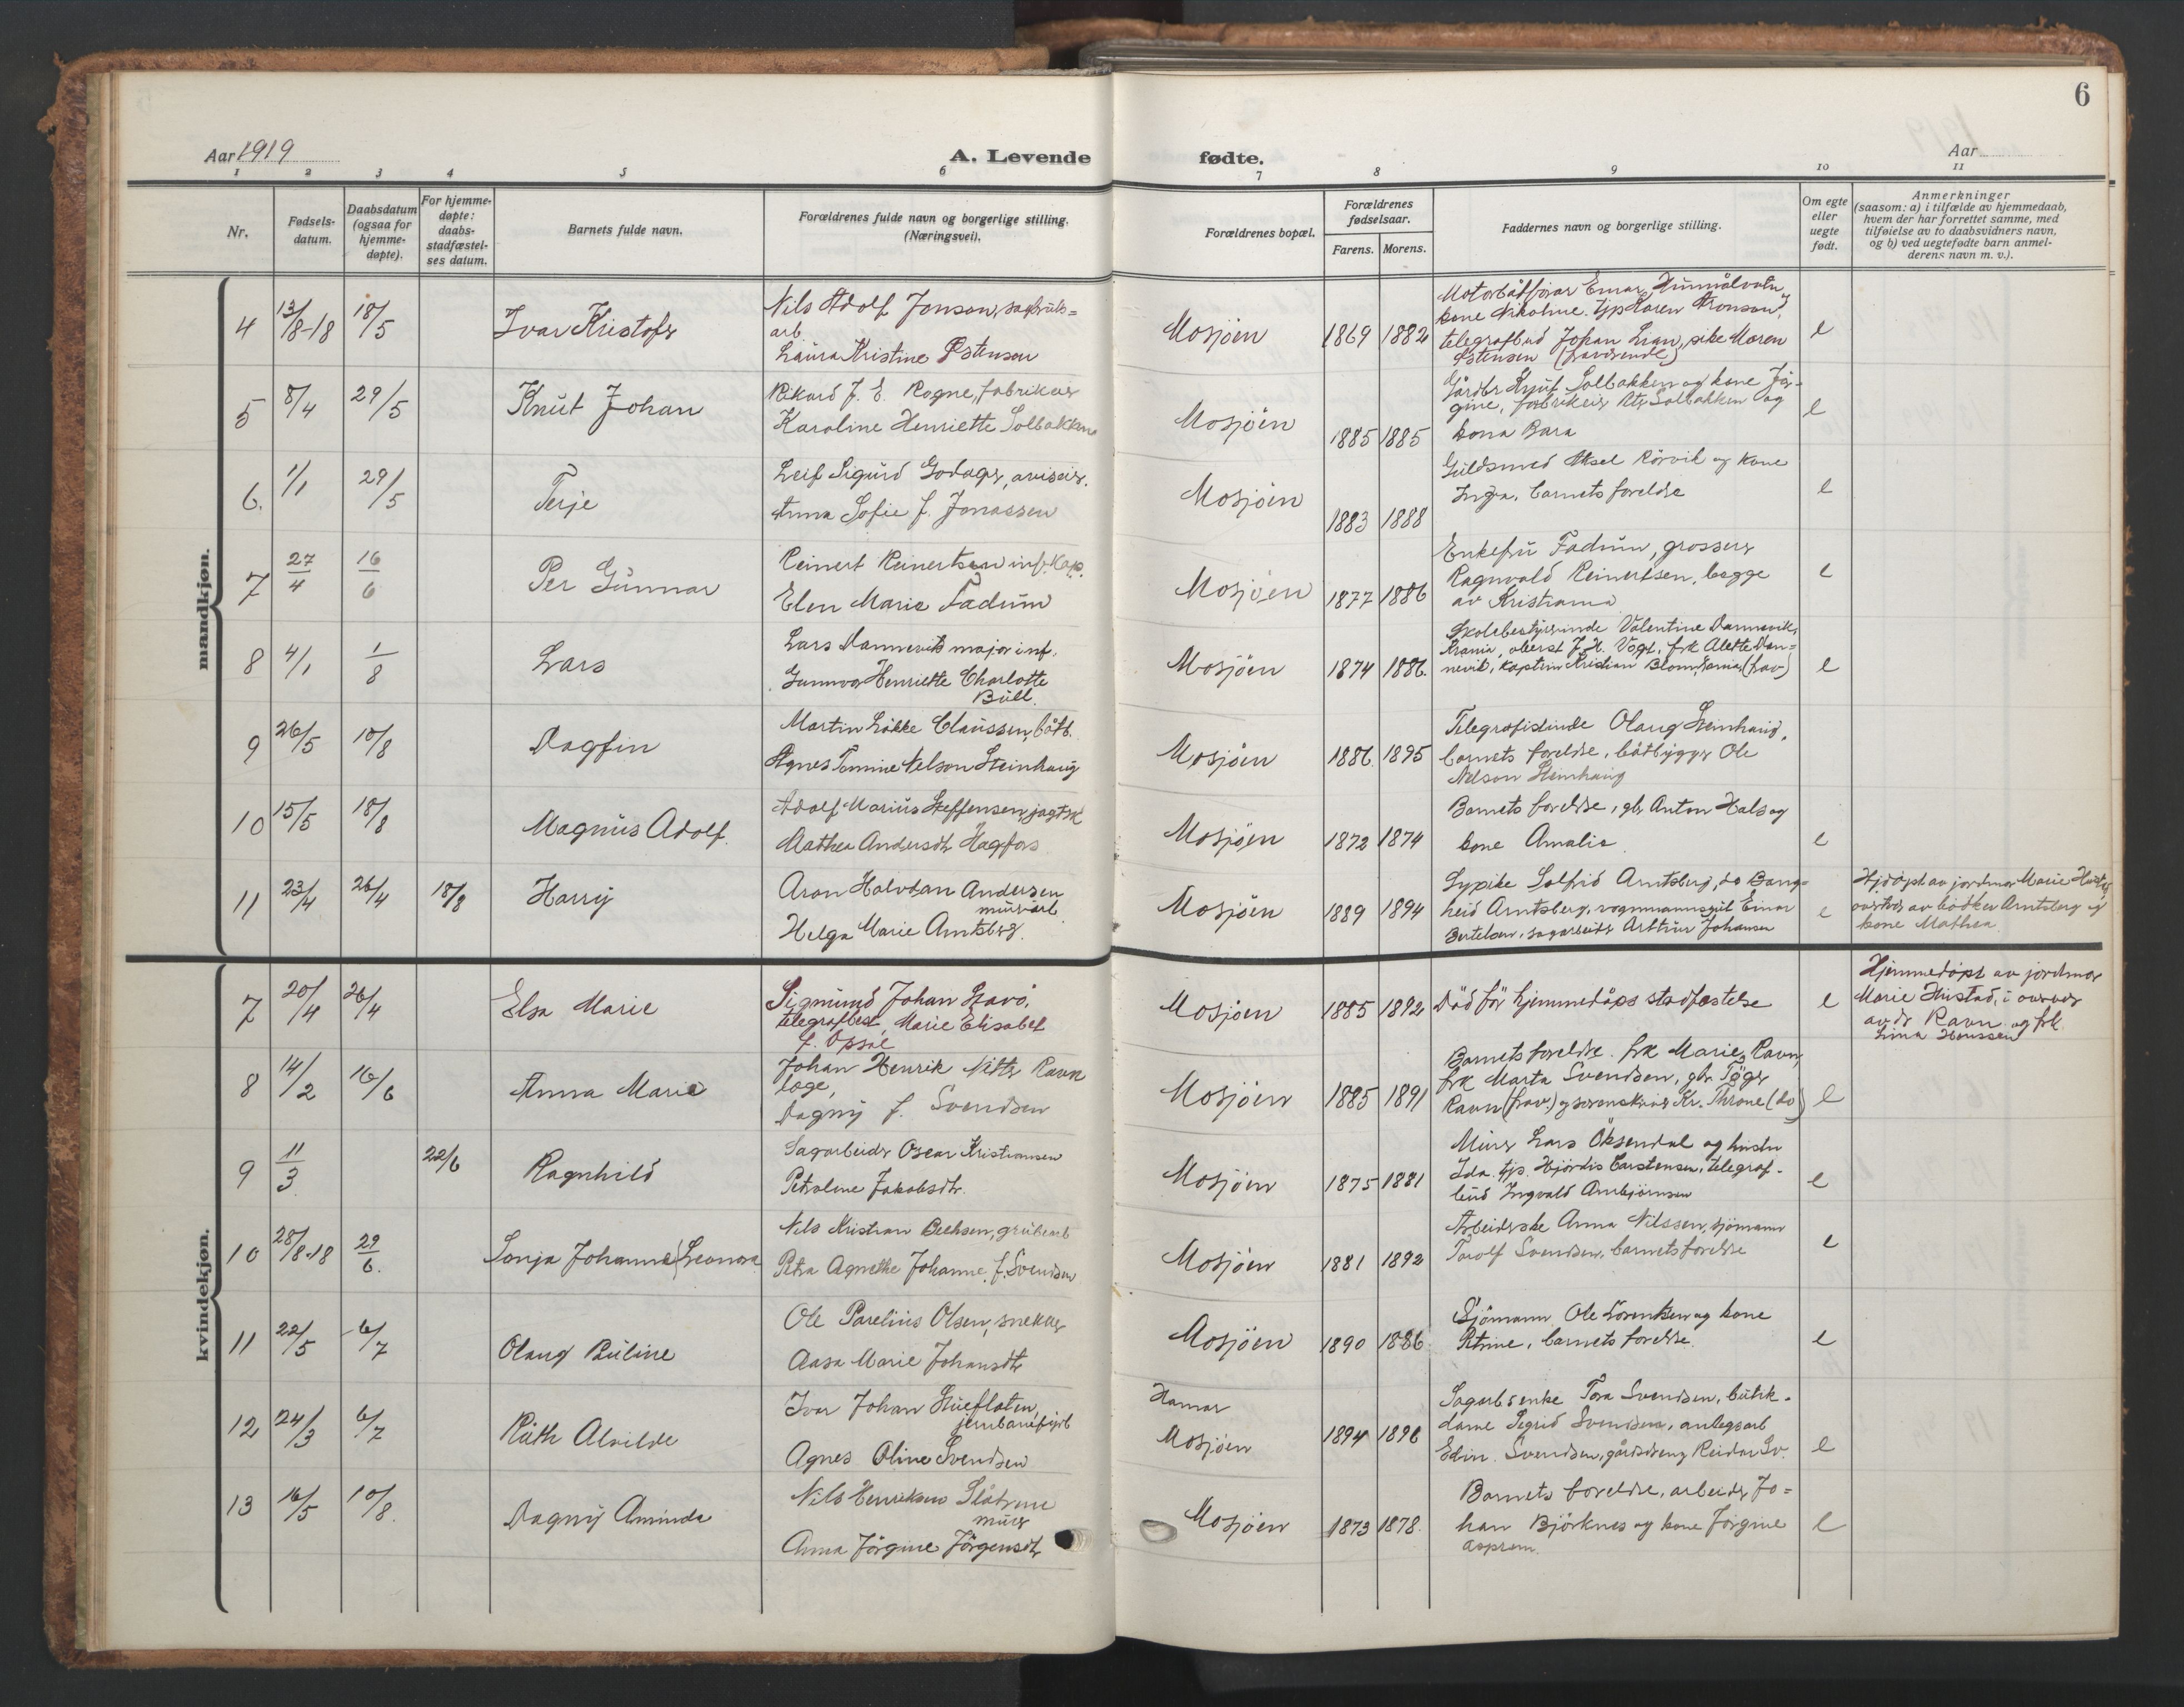 6
Aar 1919
A. Levende
fødte.
Aar
1 2 3 4 5 6 7 8 9 10 11
Nr.
Fødsels-
datum.
Daabsdatum
(ogsaa for
hjemme-
døpte).
For hjemme-
døpte:
daabs-
stadfæstel-
ses datum.
Barnets fulde navn.
Forældrenes fulde navn og borgerlige stilling.
(Næringsvei).
Forældrenes bopæl.
Forældrenes
fødselsaar.
Farens. Morens.
Faddernes navn og borgerlige stilling.
Om egte
eller
uegte
født.
Anmerkninger
(saasom: a) i tilfælde av hjemmedaab,
hvem der har forrettet samme, med
tilføielse av to daabsvidners navn,
og b) ved uegtefødte barn anmel-
derens navn m. v.).
mandkjøn.
4 13/8-18 18/5 Ivar Kristofer
Nils Adolf Jonson, sagbruks=
arb.
Laura Kristine Østensen
Mosjöen 1869 1882
telegrafbud Johan Lian, pike Maren
Østensen (fraværende)
e
5 8/4 29/5 Knut Johan
Rikard J. E. Rogne, fabrikeier
Karoline Henriette Solbakken
Mosjöen 1885 1885
Gårdbr Knut Solbakken og kone Jör-
gine, fabrikeier Solbakken og
kona Bara
e
6. 1/1 29/5 Terje
Leif Sigurd Godager, aviseier.
Anna Sofie f. Jonassen
Mosjöen 1883 1888
Guldsmed Aksel Rörvik og kone
Inga, barnets foreldre
e
7 27/4 16/6 Per Gunnar
Reinert Reinertsen inf. Kap.
Elen Marie Fadum
Mosjöen 1877 1886
Enkefru Fadum, grosserer
Ragnvald Reinertsen, begge
av Kristiania
e
8 4/1 1/8 Lars
Lars Dannevik major inf.
Gunnvor Henriette Charlotte
Bull.
Mosjöen 1874 1886.
Skolebestyrerinde Valentine Dannevik,
Krania, oberst J. H. Vogt, frk Alette Dan=
nevik, kaptein Kristian Blom, Krania (frav)
e
9 26/5 10/8 Dagfin
Martin Løkke Claussen, båtb.
Agnes Tomine Nelson Steinhaug
Mosjöen 1886. 1895
Telegrafistinde Olaug Steinhaug,
barnets foreldre, båtbygger Ole
Nelson Steinhaug
10 15/5 18/8 Magnus Adolf.
Adolf Marius Steffensen jagtsk
Mathea Andersdtr Hagfors
Mosjöen 1872 1874
Barnets foreldre, gbr Anton Hals og
kone Amalie.
e
11 23/4 26/4 18/8 Harry
Aron Halvdan Andersen
murarb.
Helga Marie Arntsberg.
Mosjöen 1889 1894
Sypike Solfrid Arntsberg, do Borg=
heid Arntsberg, vognmannsgut Einar
Bertelsen, sagarbeider Arthur Johansen
e
Hjdöpt av jordmor Marie Hustad
overvær av bödker Arntsberg og
kone Mathea.
kvindekjøn.
7 20/4 26/4 Elsa Marie
Sigmund Johan Stavö,
telegrafbest, Marie Elisabet
f. Opsal
Mosjöen 1885 1892
Död för hjemmedåps stadfæstelse
e
Hjemmedöpt av jordmor
Marie Hustad, i overvær
av dr Ravn og frk.
Lina Henssen
8 14/2 16/6 Anna Marie
Johan Henrik Nitter Ravn
læge,
Dagny f. Svendsen
Mosjöen 1885 1891
Barnets foreldre. frk Marie Ravn,
frk Marta Svendsen, gbr Töger
Ravn (frav.) og sorenskriver Kr. Throne (do)
e
9 11/3 22/6 Ragnhild
Sagarbeider Oscar Kristiansen
Petroline Jakobsdtr.
Mosjöen 1875 1881
Murer Lars Öksendal og hustru
Ida. tjp. Hjördis Carstensen, telegraf-
bud Ingvald Arnbjörnsen
e
10 28/8-18 29/6. Sonja Johanne Leonora
Nils Kristian Bechsen, grubearb
Petra Agnethe Johanne f. Svendsen
Mosjöen 1881 1892
Arbeiderske Anna Nilssen, sjömann
Torolf Svendsen, barnets foreldre
e
11 22/5 6/7 Olaug Pauline
Ole Parelius Olsen, snekker
Aasa Marie Johansdtr
Mosjöen 1890 1886
Sjömann Ole Lorentsen og kone
Petrine, barnets foreldre.
e
12 24/3 6/7 Ruth Alvilde
Ivar Johan Stuefloten,
jernbanefyrb
Agnes Oline Svendsen
Hamar
Mosjöen 1894 1896
Sagarbs enke Tora Svendsen, butik-
dame Sigrid Svendsen, anlegsarb
Edin Svendsen, gårdsdreng Reidar Sv.
e
13 16/5 10/8. Dagny Aminda
Nils Henriksen Slåtrem
murer
Anna Jörgine Jörgensdtr
Mosjöen 1873 1878.
Barnets foreldre, arbeider Jo=
han Björknes og kone Jörgine
e